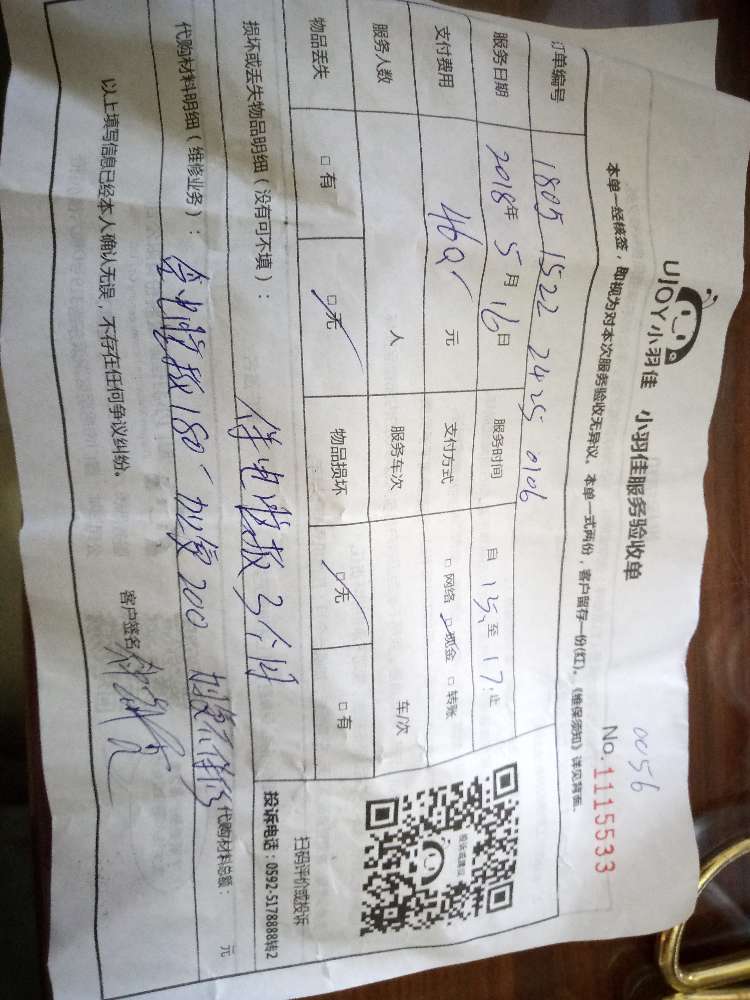 UJOY小羽佳 小羽佳服务验收单
0056
No.1115533
本单一经核签，即视为对本次服务验收无异议。本单一式两份，客户留存一份(红)。《维保须知》详见背面。
订单编号 1805 1522 2425 0106
服务日期 2018年5月16日 服务时间 自 15 至 17 止
支付费用 460 元 支付方式 □网络 □现金 □转账
服务人数 人 服务车次 车/次
物品丢失 □有 □无 物品损坏 □无 □有
损坏或丢失物品明细（没有可不填）： 保电脑板3个月
代购材料明细（维修业务）： 电脑板180 加氟200
代购材料总额： 元
以上填写信息已经本人确认无误，不存在任何争议纠纷。
客户签名
投诉或建议
扫码评价或投诉
投诉电话：0592-5178888转2